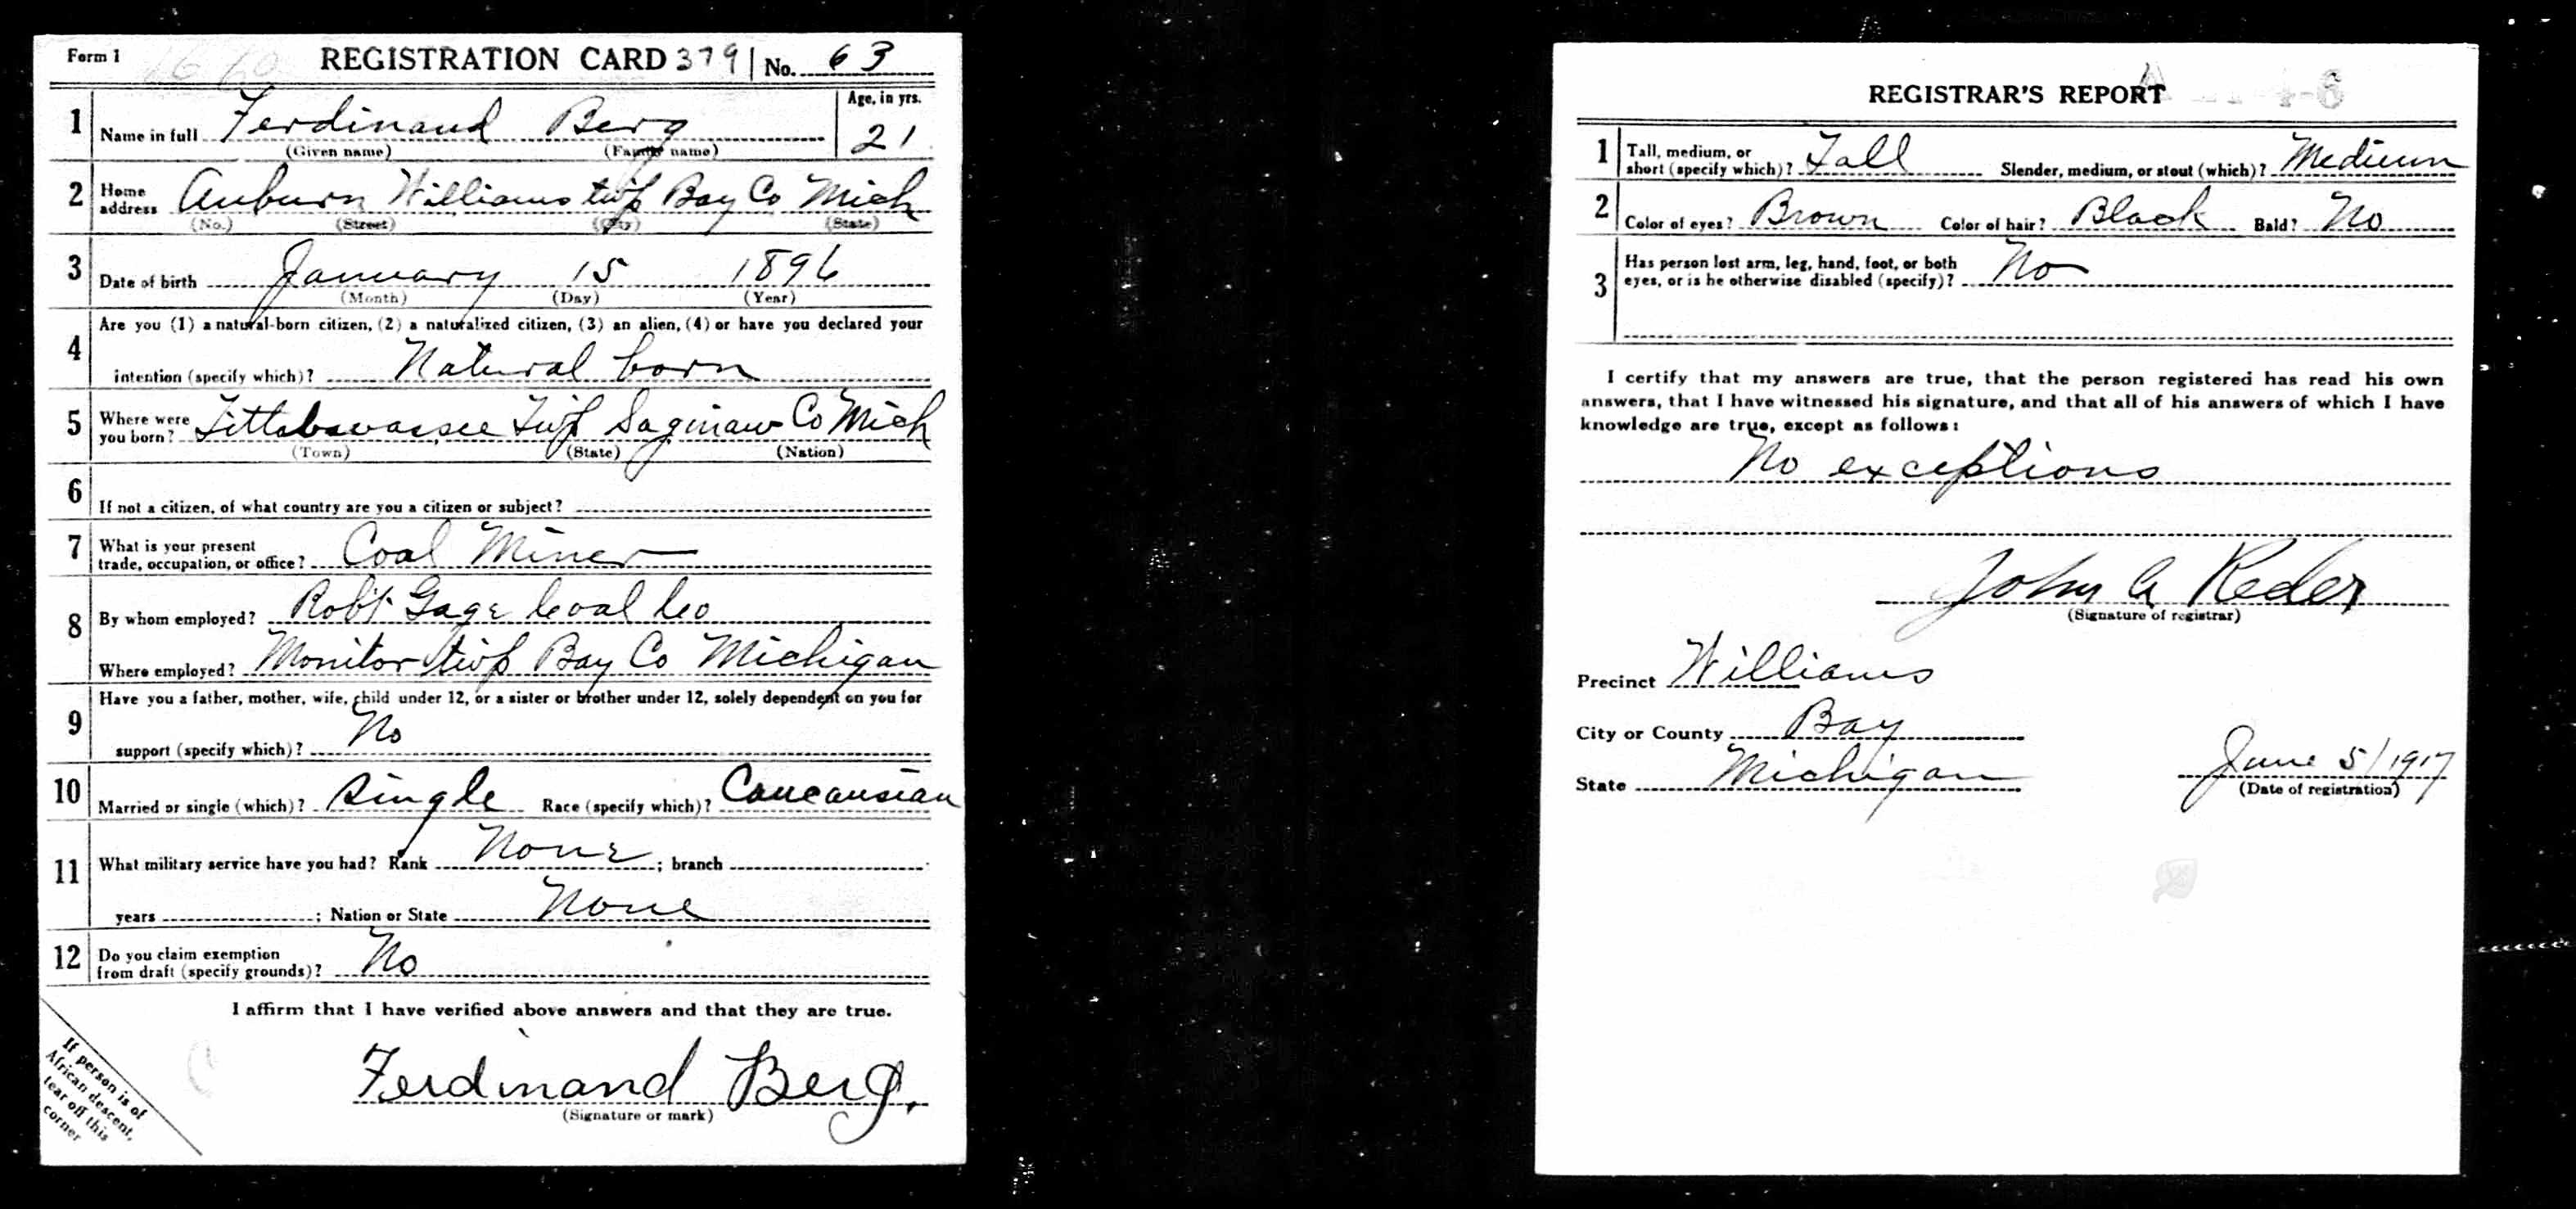 Form 1 REGISTRATION CARD 379 No. 63
1 Name in full Ferdinand Berg Age, in yrs. 21
(Given name) (Family name)
2 Home address Auburn Williams twp Bay Co Mich
(No.) (Street) (City) (State)
3 Date of birth January 15 1896
(Month) (Day) (Year)
4 Are you (1) a natural-born citizen, (2) a naturalized citizen, (3) an alien, (4) or have you declared your
intention (specify which)? Natural born
5 Where were you born? Tittabawassee Twp Saginaw Co Mich
(Town) (State) (Nation)
6 If not a citizen, of what country are you a citizen or subject?
7 What is your present
trade, occupation, or office? Coal Miner
8 By whom employed? Robt Gage Coal Co
Where employed? Monitor twp Bay Co Michigan
9 Have you a father, mother, wife, child under 12, or a sister or brother under 12, solely dependent on you for
support (specify which)? No
10 Married or single (which)? Single Race (specify which)? Caucausian
11 What military service have you had? Rank None ; branch
years ; Nation or State None
12 Do you claim exemption
from draft (specify grounds)? No
I affirm that I have verified above answers and that they are true.
Ferdinand Berg.
(Signature or mark)
If person is of
African descent,
tear off this
corner
REGISTRAR'S REPORT
1 Tall, medium, or
short (specify which)? Tall Slender, medium, or stout (which)? Medium
2 Color of eyes? Brown Color of hair? Black Bald? No
3 Has person lost arm, leg, hand, foot, or both
eyes, or is he otherwise disabled (specify)? No
I certify that my answers are true, that the person registered has read his own
answers, that I have witnessed his signature, and that all of his answers of which I have
knowledge are true, except as follows:
No exceptions
John A Reder
(Signature of registrar)
Precinct Williams
City or County Bay
State Michigan
June 5/1917
(Date of registration)